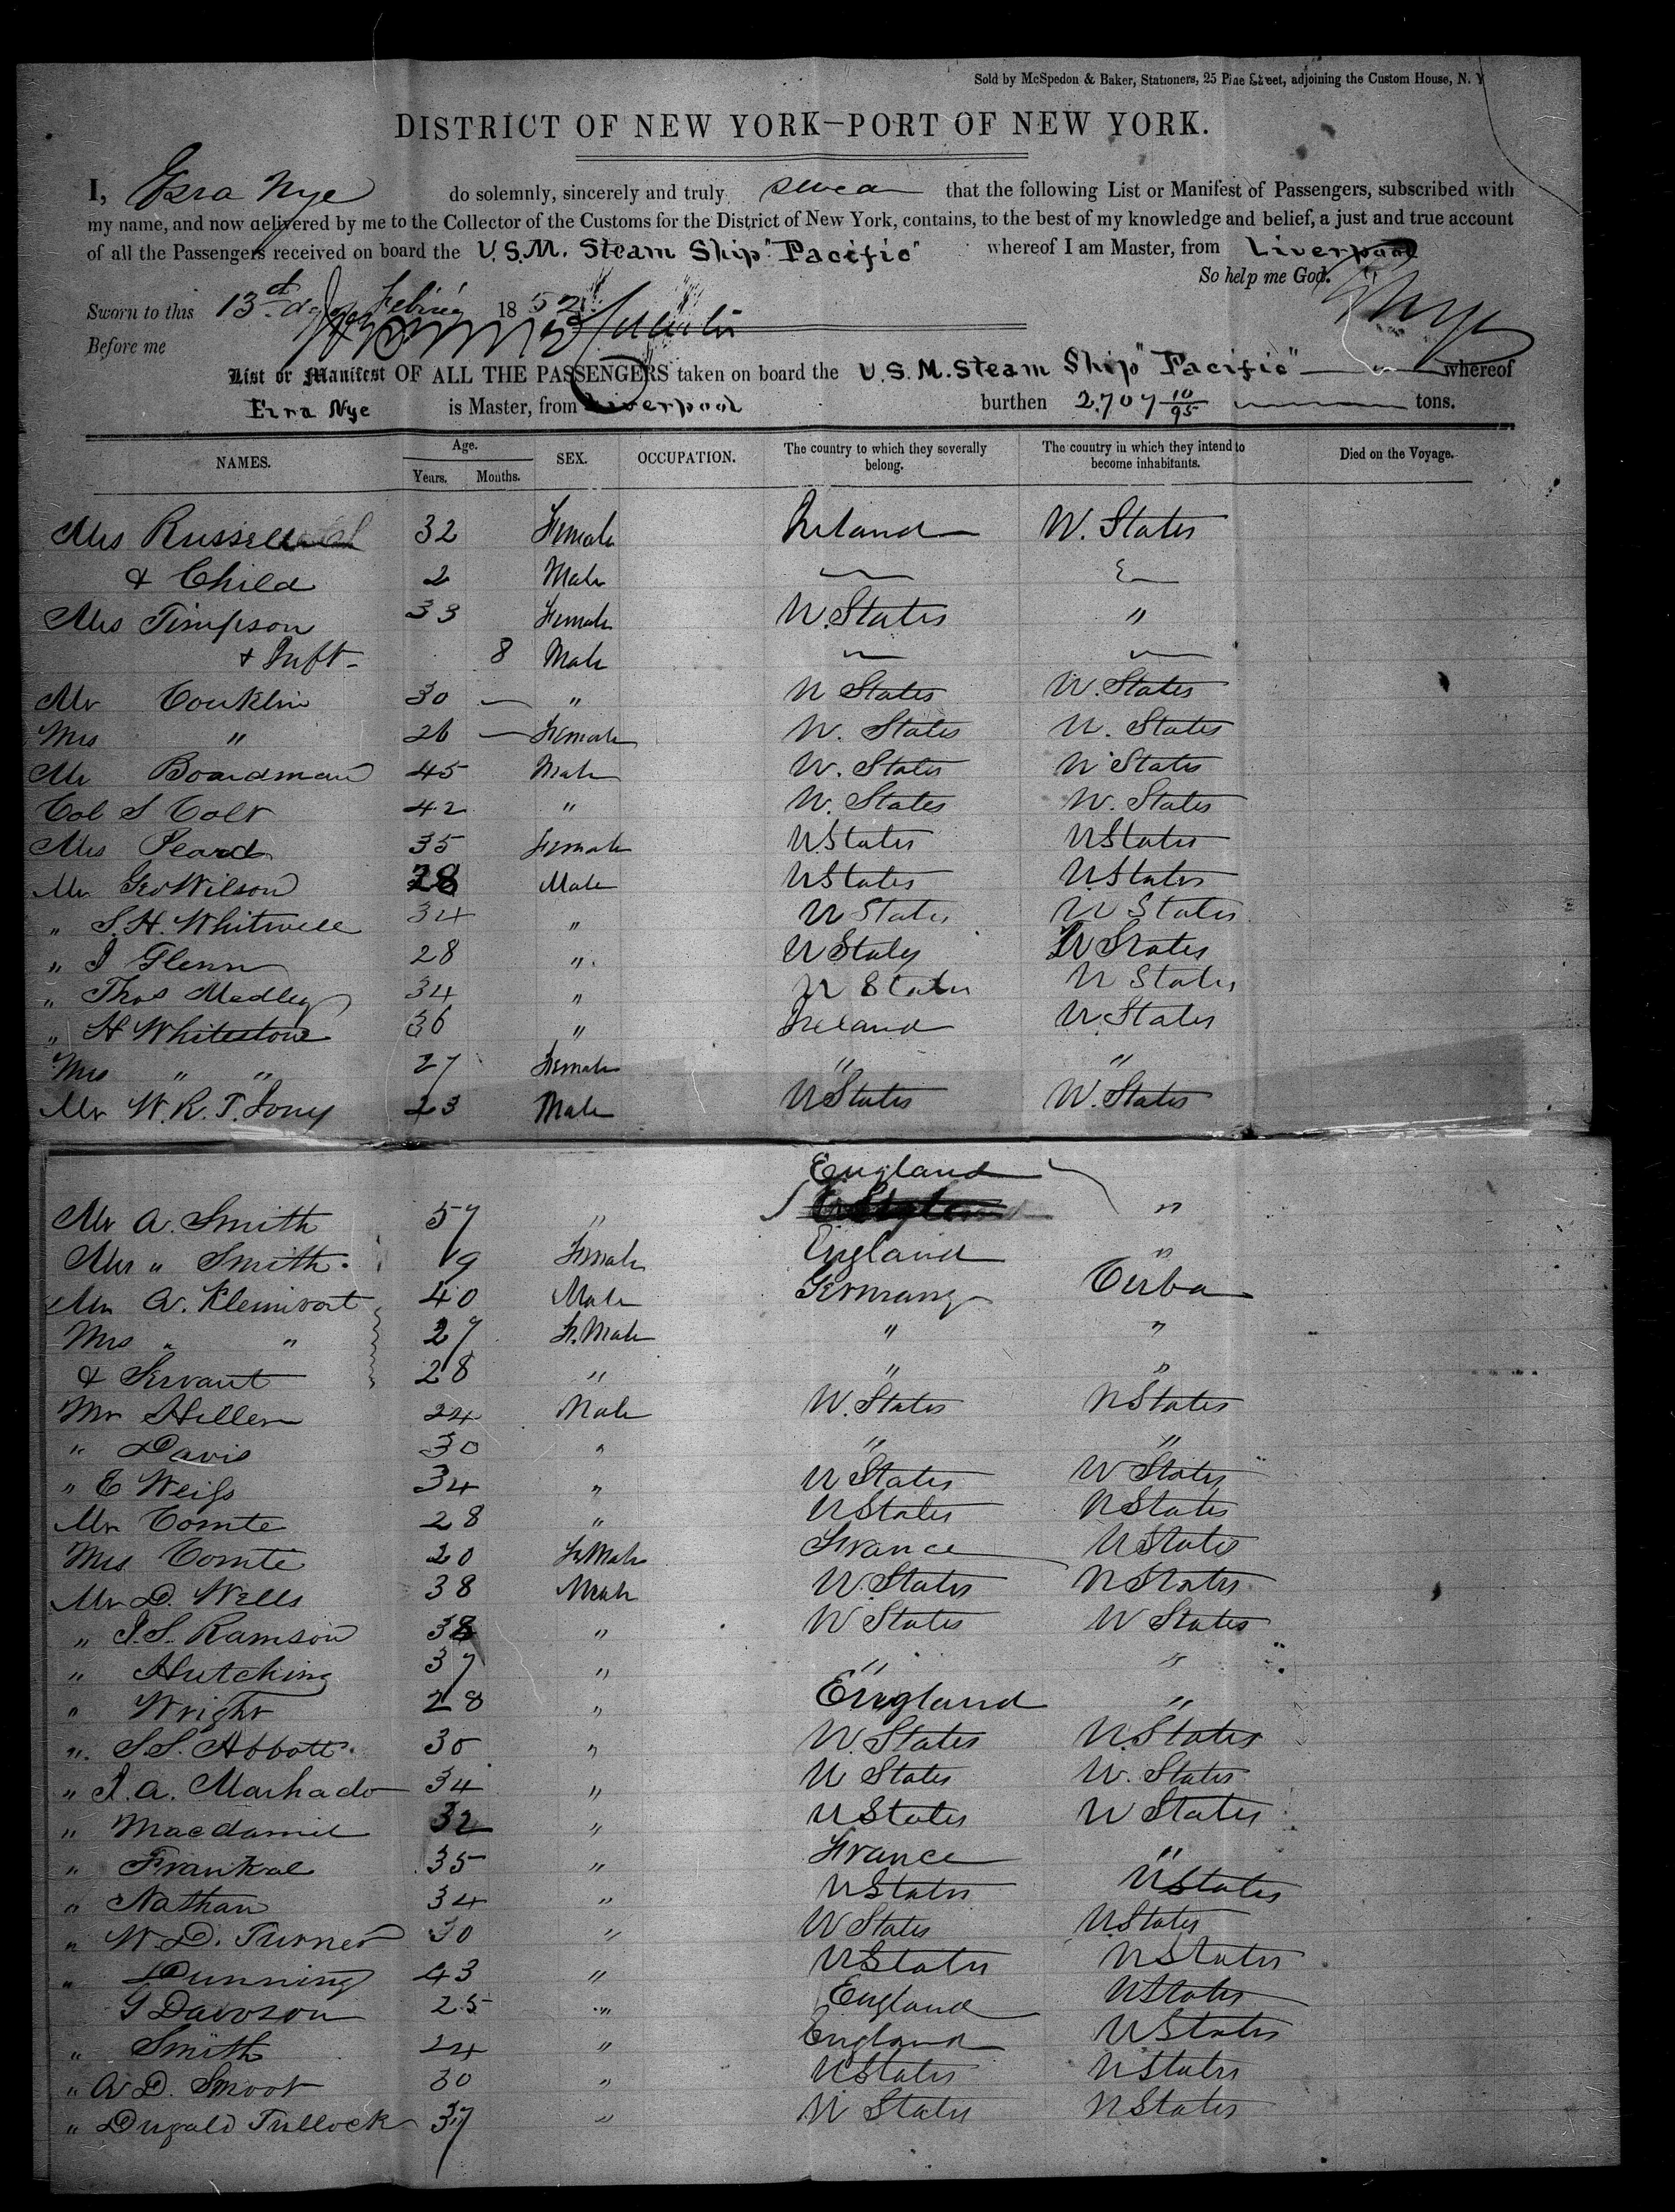 Sold by McSpedon & Baker, Stationers, 25 Pine Street, adjoining the Custom House, N. Y
DISTRICT OF NEW YORK—PORT OF NEW YORK.
I, Ezra Nye do solemnly, sincerely and truly swear that the following List or Manifest of Passengers, subscribed with
my name, and now delivered by me to the Collector of the Customs for the District of New York, contains, to the best of my knowledge and belief, a just and true account
of all the Passengers received on board the U.S.M. Steam Ship "Pacific" whereof I am Master, from Liverpool
So help me God.
Sworn to this 13th day Feb 1852 Nye
Before me
List or Manifest OF ALL THE PASSENGERS taken on board the U.S.M. Steam Ship "Pacific" whereof
Ezra Nye is Master, from Liverpool burthen 2,707 10/95 tons.
NAMES. Age. Years. Months. SEX. OCCUPATION. The country to which they severally belong. The country in which they intend to become inhabitants. Died on the Voyage.
Mrs Russell 32 Female Ireland U. States
& Child 2 Male
Mrs Timpson 33 Female U. States "
& Inft - 8 Male
Mr Conklin 30 — " U States U. States
Mrs " 26 — Female U. States U. States
Mr Boardman 45 Male U. States U States
Col S Colt 42 " U. States U. States
Mrs Peard 35 Female U. States U States
Mr Geo Wilson 28 Male U States U. States
" S. H. Whitwell 34 " U States U States
" J Glenn 28 " U States U States
" Thos Medley 34 " U States U States
" H Whitestone 36 " Ireland U. States
Mrs " " 27 Female " "
Mr W. R. T. Jony 23 Male U States U. States
England
Mr A. Smith 57 " "
Mrs " Smith 19 Female England "
Mr A. Kleinwort 40 Male Germany Cuba
Mrs " " 27 Fe.Male " "
& Servant 28 " " "
Mr Hiller 24 Male U. States U States
" Davis 30 " " "
" E Weiss 34 " U States U States
Mr Comte 28 " U States U States
Mrs Comte 20 FeMale France U States
Mr D. Wells 38 Male U. States U States
" J. S. Ramson 38 " U States U States
" Hutching 37 " " "
" Wright 28 " England "
" S. S. Abbott 30 " U. States U. States
" J. A. Machado 34 " U States U. States
" Macdaniel 32 " U States U States
" Frankal 35 " France "
" Nathan 34 " U States U States
" W. D. Turner 30 " U States U States
" Dunning 43 " U States U States
G Davoson 25 " England U States
" Smith 24 " England U States
" A D. Smoot 30 " U States U States
" Dugald Tullock 37 " U States U States